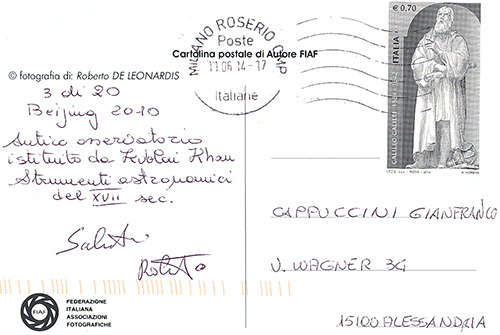 MILANO ROSERIO CMP
Poste
11.06.14-17
Italiane
€ 0,70
ITALIA
GALILEO GALILEI
Cartolina postale di Autore FIAF
© fotografia di: Roberto DE LEONARDIS
3 di 20
Beijing 2010
Antico osservatorio
istituito da Kublai Khan
Strumenti astronomici
del XVII sec.
Saluti
Roberto
CAPPUCCINI GIANFRANCO
V. WAGNER 3G
15100 ALESSANDRIA
FIAF
FEDERAZIONE
ITALIANA
ASSOCIAZIONI
FOTOGRAFICHE